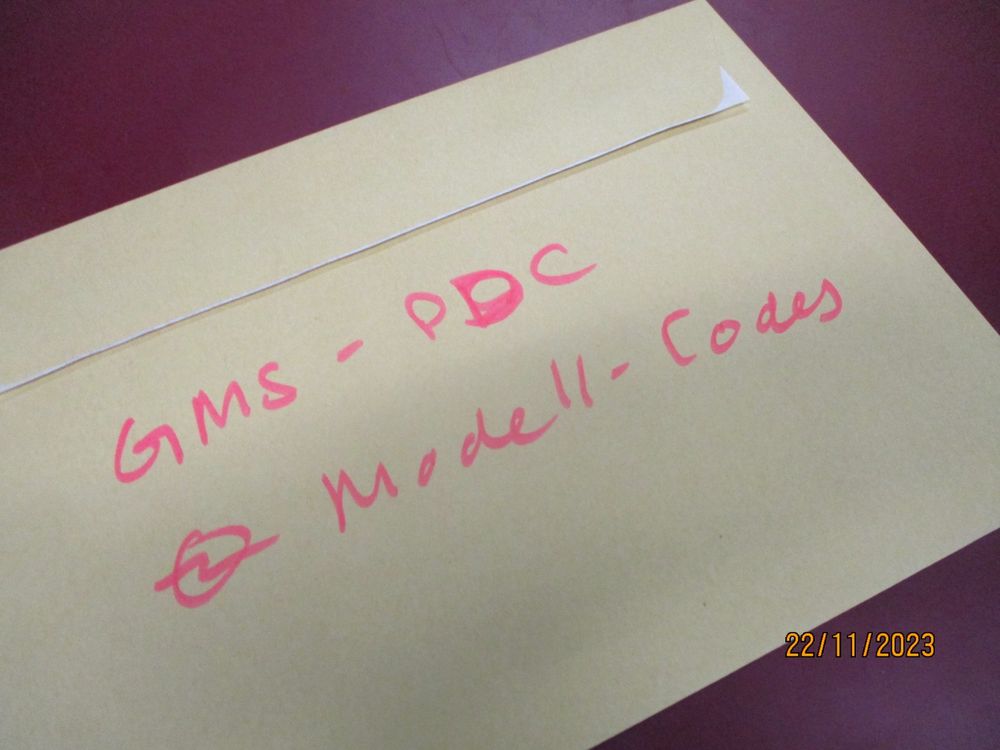 GMS - PDC
Modell-Codes
22/11/2023